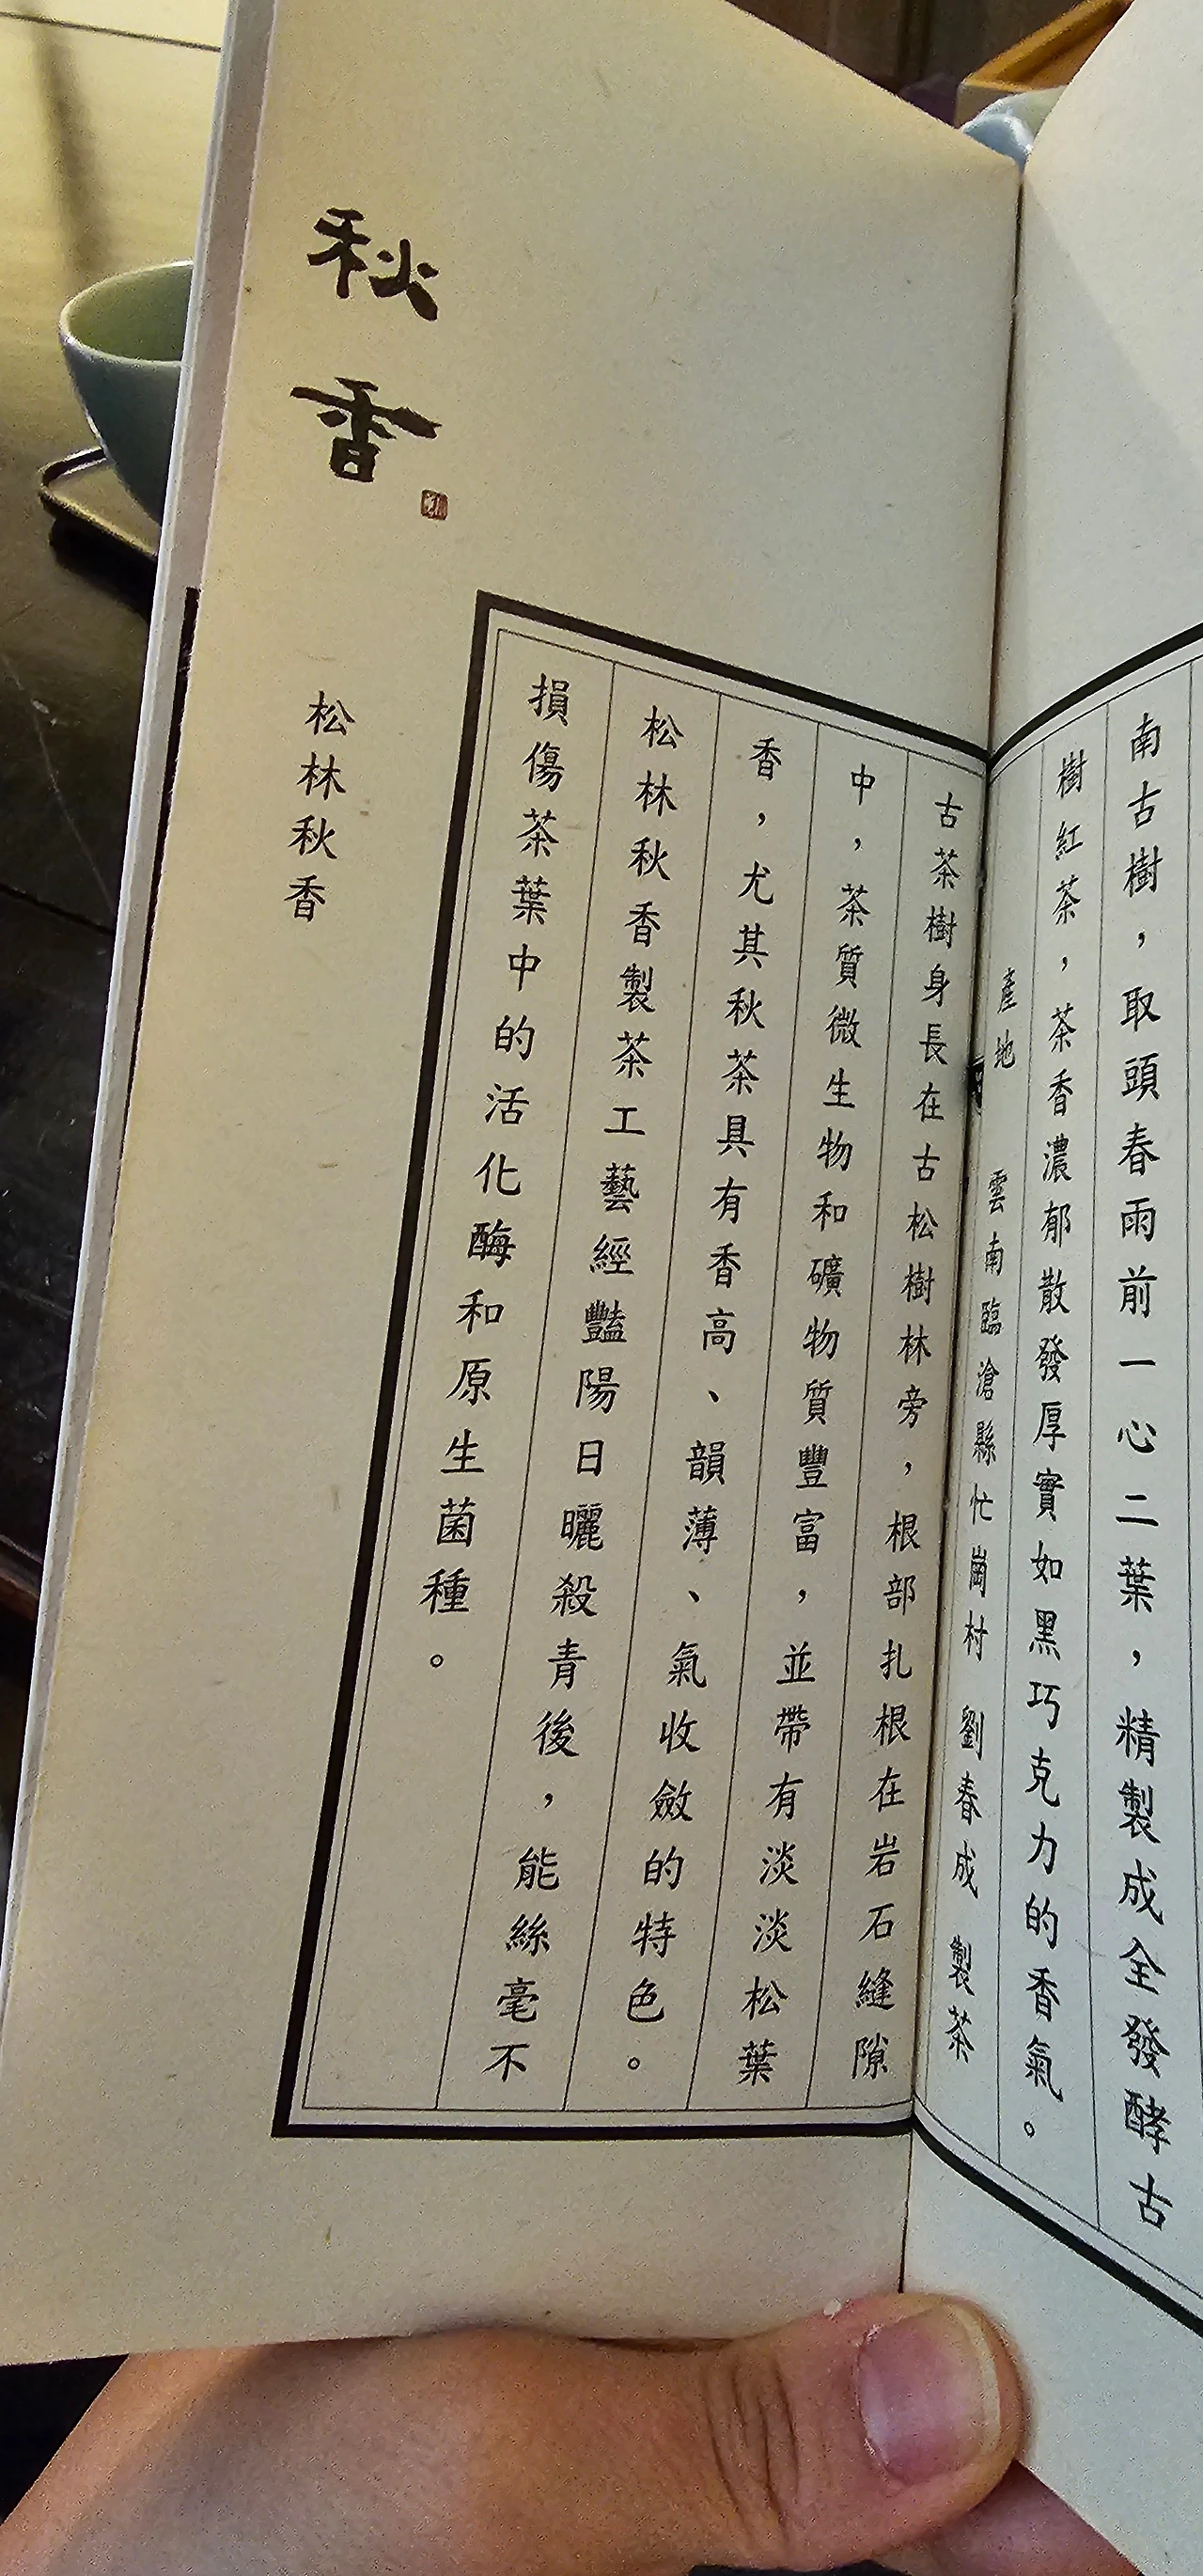 南古樹，取頭春雨前一心二葉，精製成全發酵古
樹紅茶，茶香濃郁散發厚實如黑巧克力的香氣。
產地 雲南臨滄縣忙崗村 劉春成 製茶
古茶樹身長在古松樹林旁，根部扎根在岩石縫隙
中，茶質微生物和礦物質豐富，並帶有淡淡松葉
香，尤其秋茶具有香高、韻薄、氣收斂的特色。
松林秋香製茶工藝經豔陽日曬殺青後，能絲毫不
損傷茶葉中的活化酶和原生菌種。
秋香
松林秋香